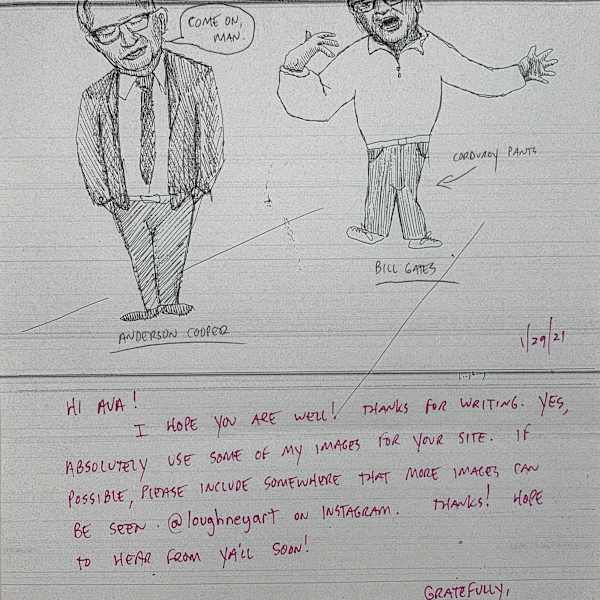 COME ON,
MAN.
CORDUROY PANTS
BILL GATES
ANDERSON COOPER
1/29/21
HI AVA!
I HOPE YOU ARE WELL! THANKS FOR WRITING. YES,
ABSOLUTELY USE SOME OF MY IMAGES FOR YOUR SITE. IF
POSSIBLE, PLEASE INCLUDE SOMEWHERE THAT MORE IMAGES CAN
BE SEEN @loughneyart ON INSTAGRAM. THANKS! HOPE
TO HEAR FROM YA'LL SOON!
GRATEFULLY,